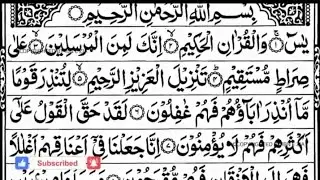 بِسْمِ اللّٰهِ الرَّحْمٰنِ الرَّحِيْمِ
يٰسٓ ۚ وَالْقُرْاٰنِ الْحَكِيْمِ ۙ اِنَّكَ لَمِنَ الْمُرْسَلِيْنَ ۙ عَلٰى
صِرَاطٍ مُّسْتَقِيْمٍ ؕ تَنْزِيْلَ الْعَزِيْزِ الرَّحِيْمِ ۙ لِتُنْذِرَ قَوْمًا
مَّاۤ اُنْذِرَ اٰبَآؤُهُمْ فَهُمْ غٰفِلُوْنَ ۶ لَقَدْ حَقَّ الْقَوْلُ عَلٰٓى
اَكْثَرِهِمْ فَهُمْ لَا يُؤْمِنُوْنَ ۷ اِنَّا جَعَلْنَا فِىْۤ اَعْنَاقِهِمْ اَغْلٰلًا
Subscribed